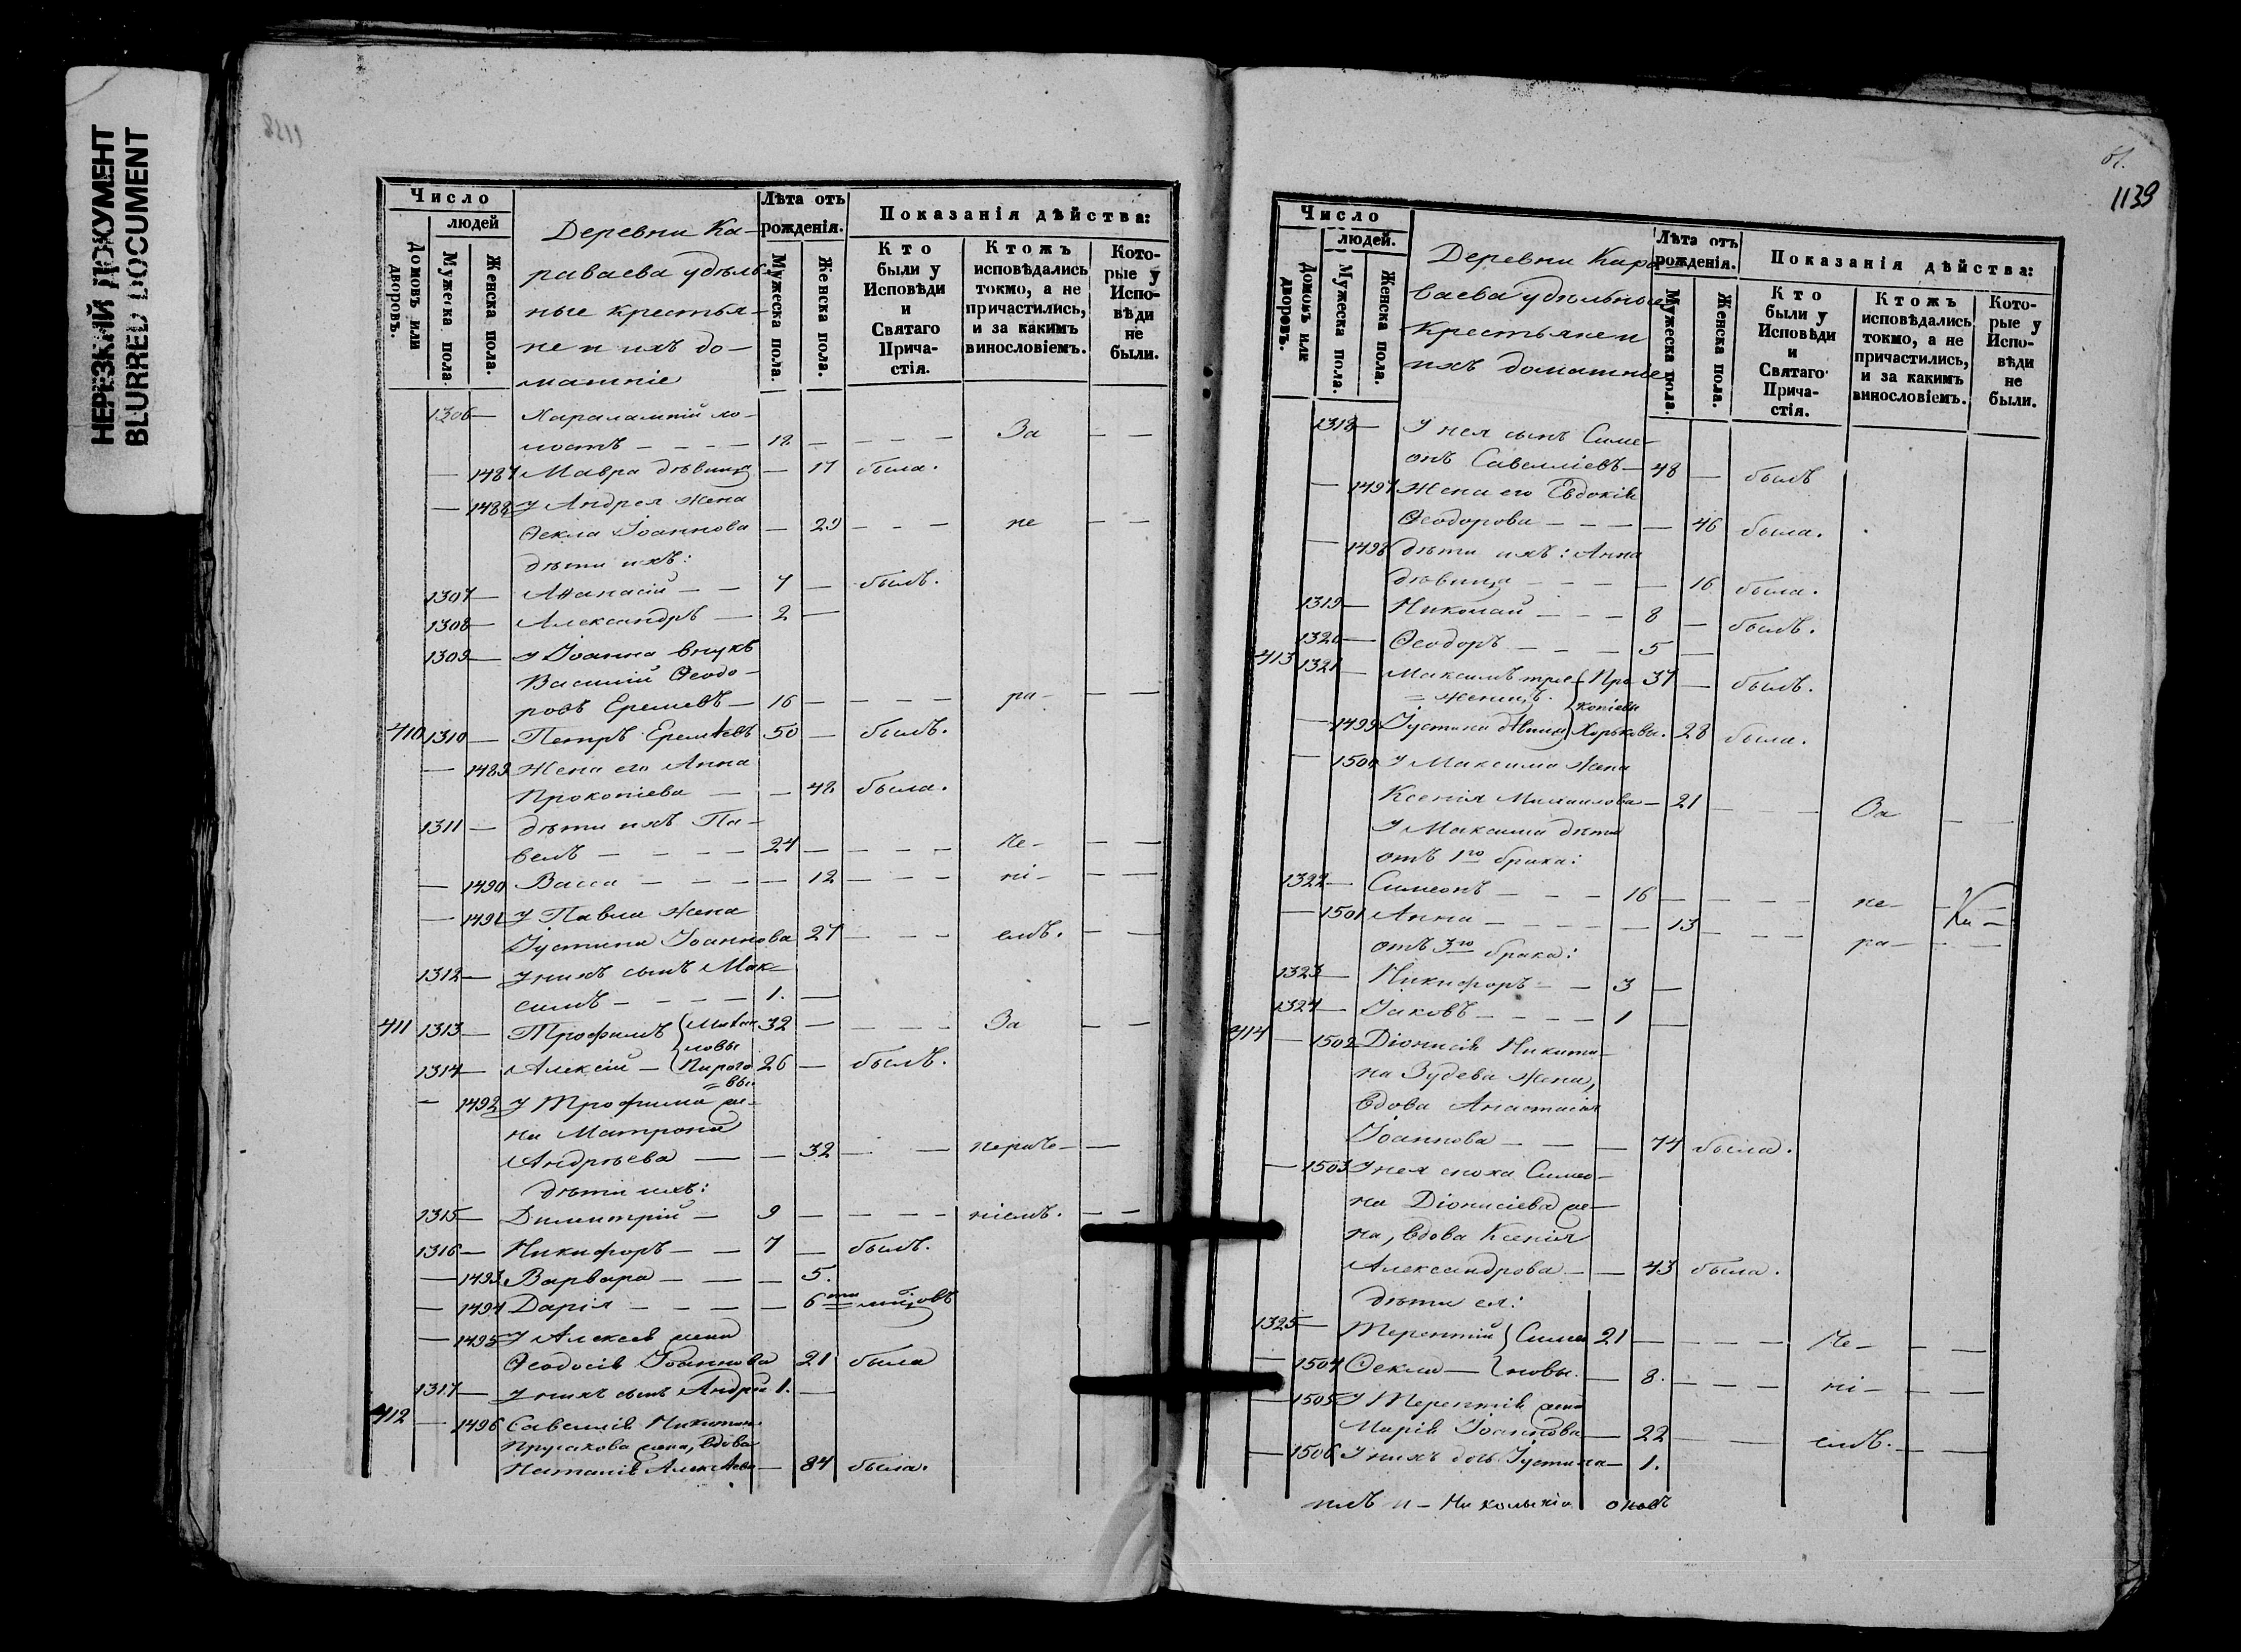 НЕРЕЗКИЙ ДОКУМЕНТ
BLURRED DOCUMENT
1138
Число
людей
Домовъ или дворовъ.
Мужеска пола.
Женска пола.
Деревни Ка-
раваева удѣль-
ные крестья-
не и ихъ до-
машніе
Лѣта отъ рожденія.
Мужеска пола.
Женска пола.
Показанія дѣйства:
Кто были у Исповѣди и Святаго Прича-стія.
Ктожъ исповѣдались токмо, а не причастились, и за какимъ винословіемъ.
Кото-рые у Испо-вѣди не были.
1306 — Харалампій хо-
лостъ — — — — 18 — — — — За — —
— 1487 Мавра дѣвица — 17 была.
— 1488 У Андрея жена
Ѳекла Іоаннова — 29 — — — не — —
дѣти ихъ:
1307 — Аѳанасій — — 7 — былъ.
1308 — Александръ — 2 —
1309 — У Іоанна внукъ
Василій Ѳеодо-
ровъ Еремѣевъ — 16 — — — — ра — — —
410 1310 — Петръ Еремѣевъ 50 — былъ.
— 1489 Жена его Анна
Прокопіева — — 48 была.
1311 — дѣти ихъ Па-
велъ — — — — 24 — — — — че — — —
— 1490 Васса — — — — 12 — — — ні — — —
— 1491 У Павла жена
Іустина Іоаннова 27 — — — емъ. — —
1312 — У нихъ сынъ Мак-
симъ — — — — 1. —
411 1313 — Трофимъ Михай 32 — — — — За — —
ловы
1314 — Алексій — Пирого 26 — былъ.
= вы
— 1492 У Трофима же-
на Матрона
Андрѣева — — 32 — — нераче — —
дѣти ихъ:
1315 — Димитрій — 9 — — — — ніемъ. — —
1316 — Никифоръ — — 7 — былъ.
— 1493 Варвара — — — 5.
— 1494 Дарія — — — — 6ти мѣсяцовъ
— 1495 У Алексія жена
Ѳеодосія Іоаннова 21 была
1317 — У нихъ сынъ Андрей 1. —
412 — 1496 Савеллія Никитина
жена, вдова
Наталія Алексѣева — 84 была.
61.
1139
Число
людей.
Домовъ или дворовъ.
Мужеска пола.
Женска пола.
Деревни Кара-
ваева удѣльные
крестьяне и
ихъ домашніе
Лѣта отъ рожденія.
Мужеска пола.
Женска пола.
Показанія дѣйства:
Кто были у Исповѣди и Святаго Прича-стія.
Ктожъ исповѣдались токмо, а не причастились, и за какимъ винословіемъ.
Кото-рые у Испо-вѣди не были.
1318 — У нея сынъ Симе-
онъ Савелліевъ — 48 — былъ
— 1497 Жена его Евдокія
Ѳеодорова — — — — 46 была.
— 1498 дѣти ихъ: Анна
дѣвица — — — — 16 была.
1319 — Николай — — — 8 — былъ.
1320 — Ѳеодоръ — — — 5 —
413 1321 — Максимъ трое Про 37 — былъ.
= женецъ. копіевы
— 1499 Іустина дѣвица Хорькова. 28 была.
— 1500 У Максима жена
Ксенія Михаилова — 21 — — — За — —
У Максима дѣти
отъ 1го брака:
1322 — Симеонъ — — — 16 — — — — не — — —
— 1501 Анна — — — — — 13 — — — ра — — —
отъ 3го брака:
1323 — Никифоръ — — 3 —
1324 — Іаковъ — — — — 1 —
414 — 1502 Діонисія Никити-
на Зудева жена,
вдова Анастасія
Іоаннова — — — 74 была.
— 1503 У нея сноха Симео-
на Діонисіева же-
на, вдова Ксенія
Александрова — — 43 была.
дѣти ея:
1325 — Терентій Симео 21 — — — — че — — —
— 1504 Ѳекла — новы. — 8. — — — ні — — —
— 1505 У Терентія жена
Марія Іоаннова — 22 — — емъ. — —
— 1506 У нихъ дочь Іустина — 1.